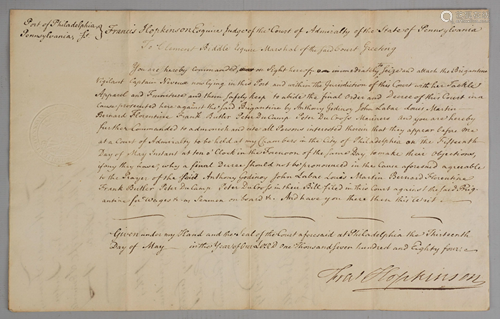 Port of Philadelphia
Pennsylvania, ss
Francis Hopkinson Esquire Judge of the Court of Admiralty of the State of Pennsylvania
To Clement Biddle Esquire Marshal of the said Court Greeting
You are hereby commanded, on Sight hereof, immediately seize and attach the Brigantine
Vigilant Captain now lying in this Port and within the Jurisdiction of this Court with her Tackle
Apparel and Furniture and them safely keep to abide the final order and Decree of this Court in a
Cause prosecuted here against the said Brigantine by Anthony John Labae Louis Martin
Bernard Florentine Frank Butler Peter DaCamp Peter DaCosta Mariners And you are hereby
further Commanded to admonish and cite all Persons interested therein that they appear before me
at a Court of Admiralty to be held at my Chambers in the City of Philadelphia on the Fifteenth
Day of May Instant at ten o'Clock in the Forenoon of the same Day to make their Objections,
if any they have, why a final Decree should not be pronounced in the Cause aforesaid agreeable
to the Prayer of the said Anthony John Labae Louis Martin Bernard Florentine
Frank Butler Peter DaCamp Peter DaCosta in their Bill filed in this Court against the said Brig-
antine for Wages as Seamen on board &c And have you there then this Writ
Given under my Hand and the Seal of the Court aforesaid at Philadelphia the Thirteenth
Day of May in the Year of our Lord One thousand seven hundred and Eighty four
Fras Hopkinson